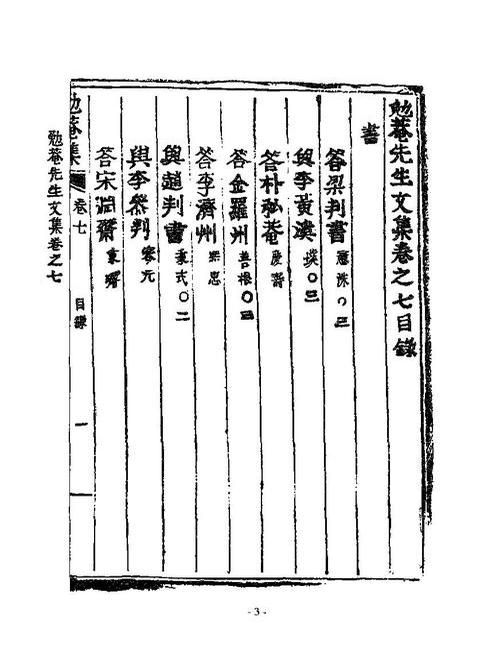 勉菴先生文集卷之七目錄
書
答梁判書 憲洙○三
與李黃 ○三
答朴弘菴 慶壽
答金羅州 善根○
答李濟州 熙忠
與趙判書 秉式○二
與李參判 容元
答宋淵齋 秉璿
勉菴集 卷七 目錄 一
勉菴先生文集卷之七
- 3 -